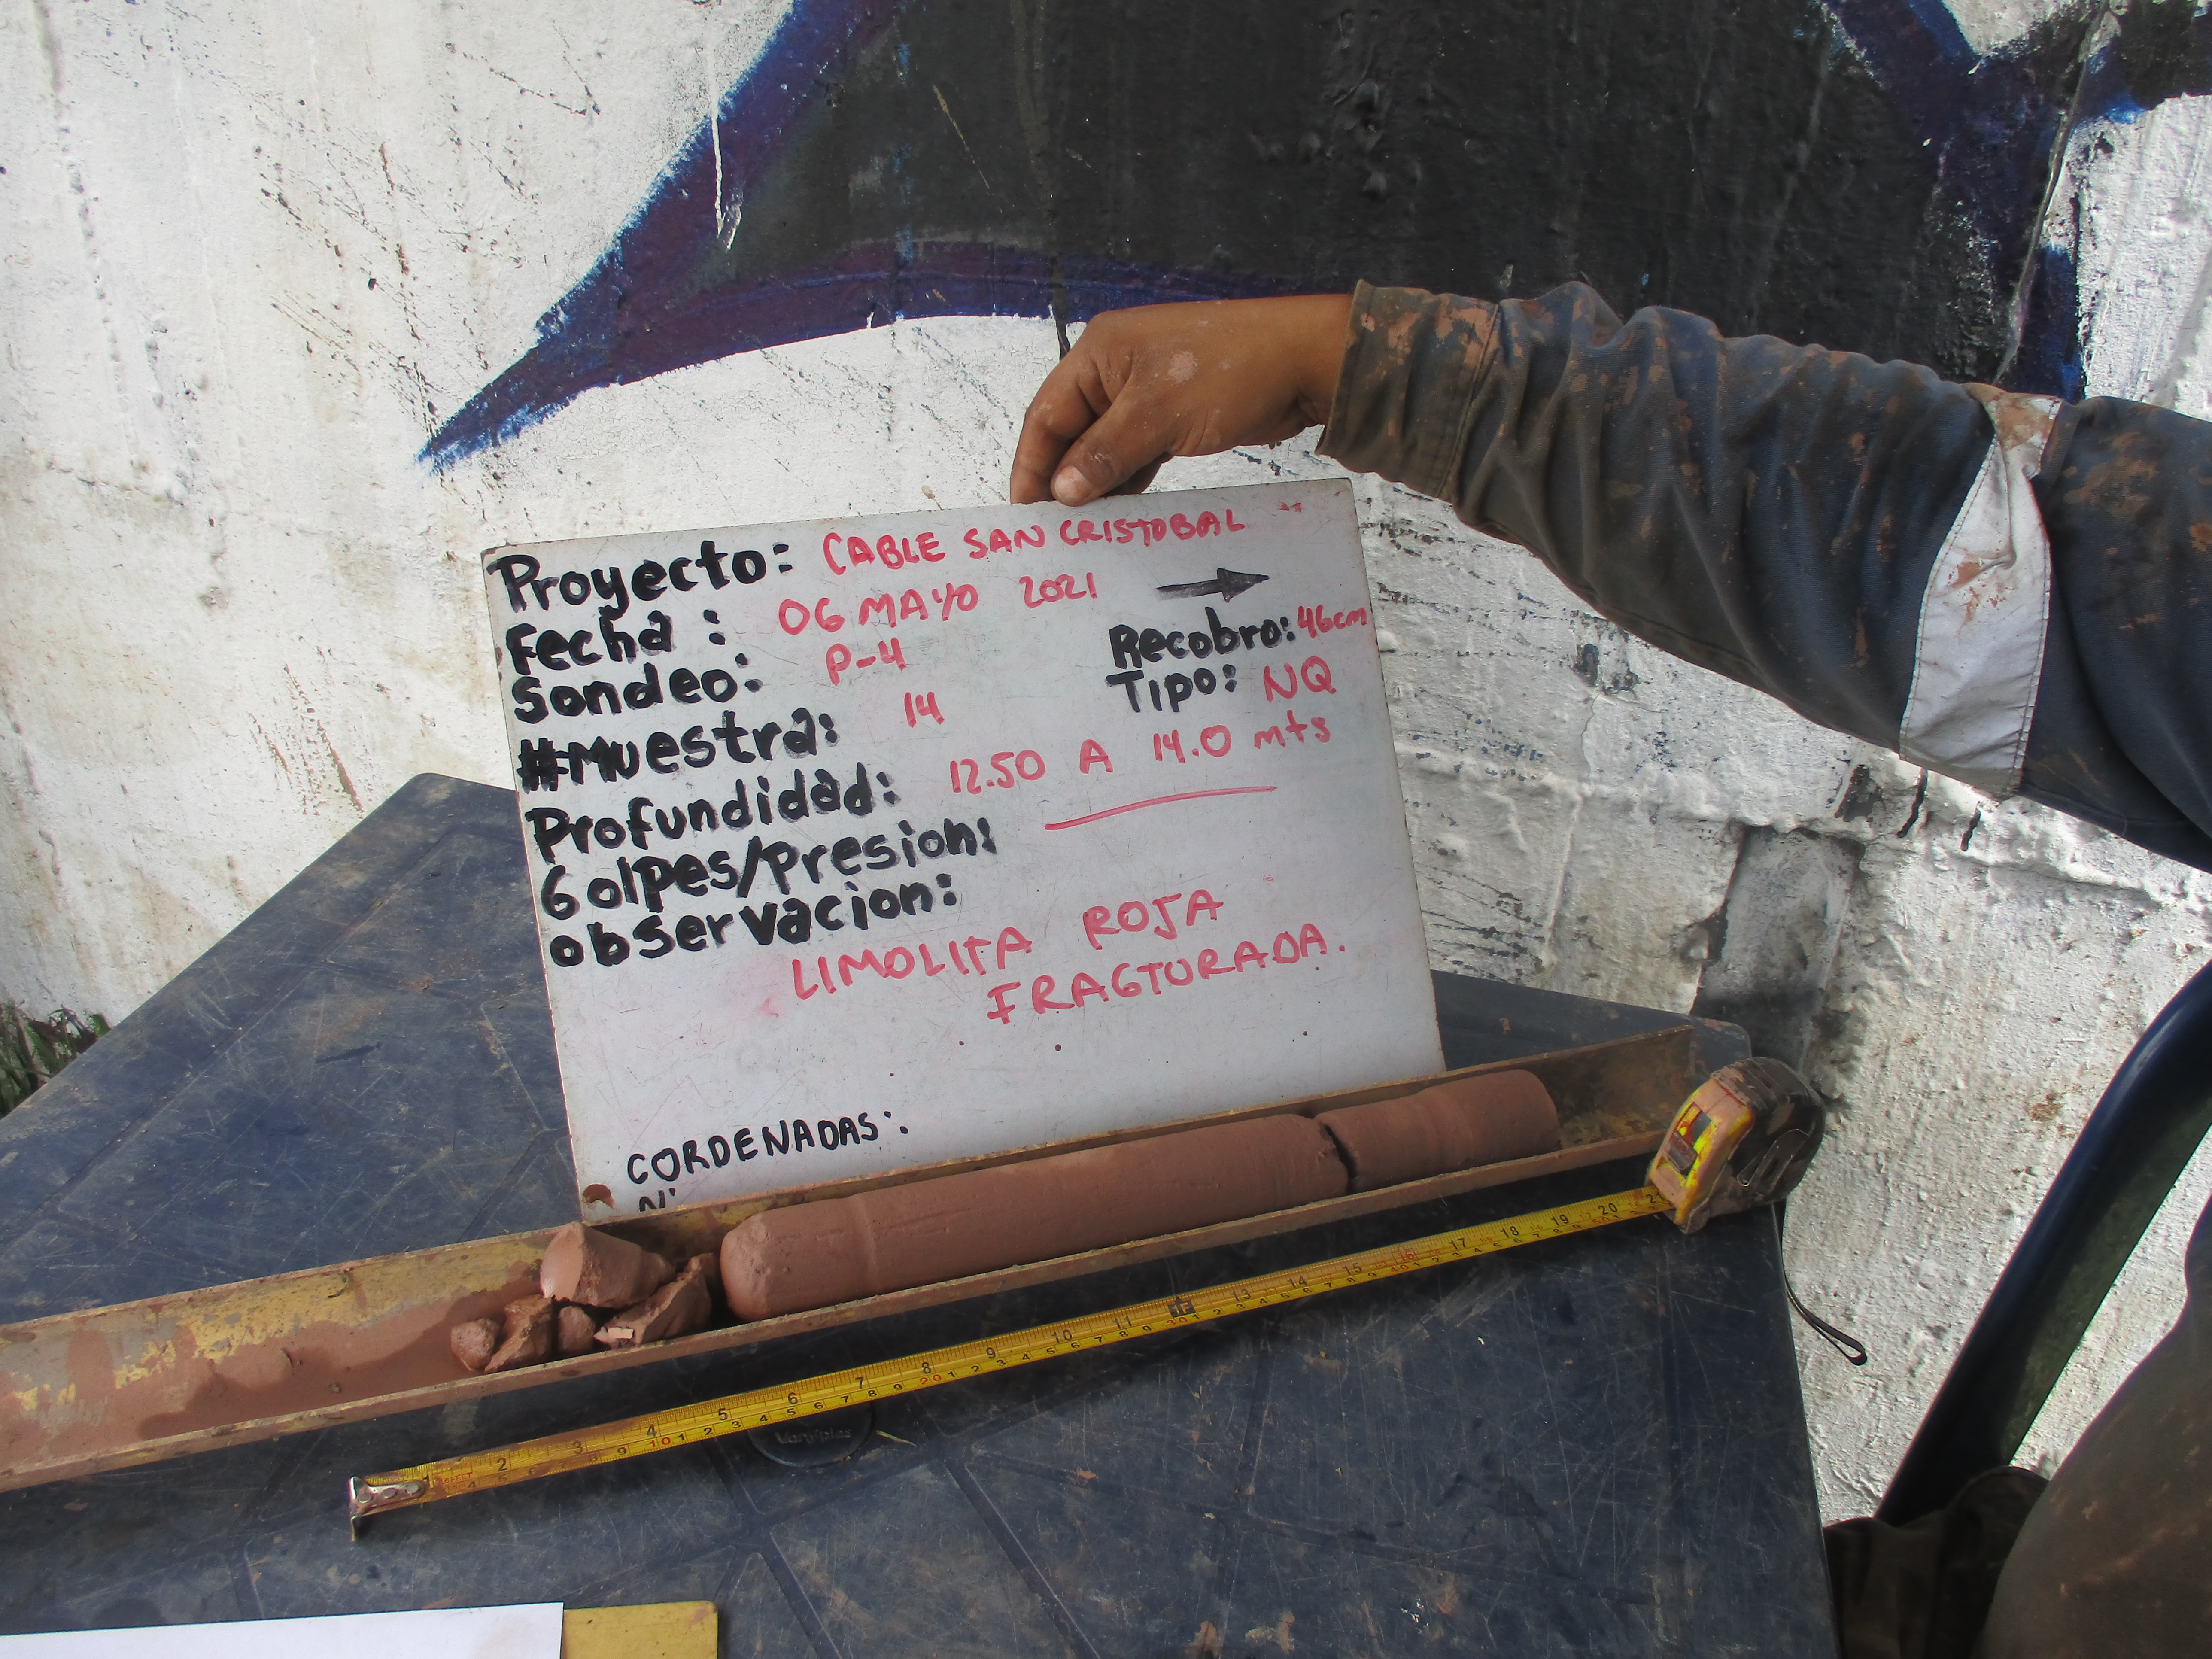 Proyecto: CABLE SAN CRISTOBAL
Fecha: 06 MAYO 2021
Sondeo: P-4
Recobro: 46cm
#Muestra: 14
Tipo: NQ
Profundidad: 12.50 A 14.0 mts
Golpes/Presion:
observacion:
LIMOLITA ROJA
FRACTURADA.
CORDENADAS:
N:
1 2 3 4 5 6 7 8 9 10 11 1F 13 14 15 16 17 18 19 20 21